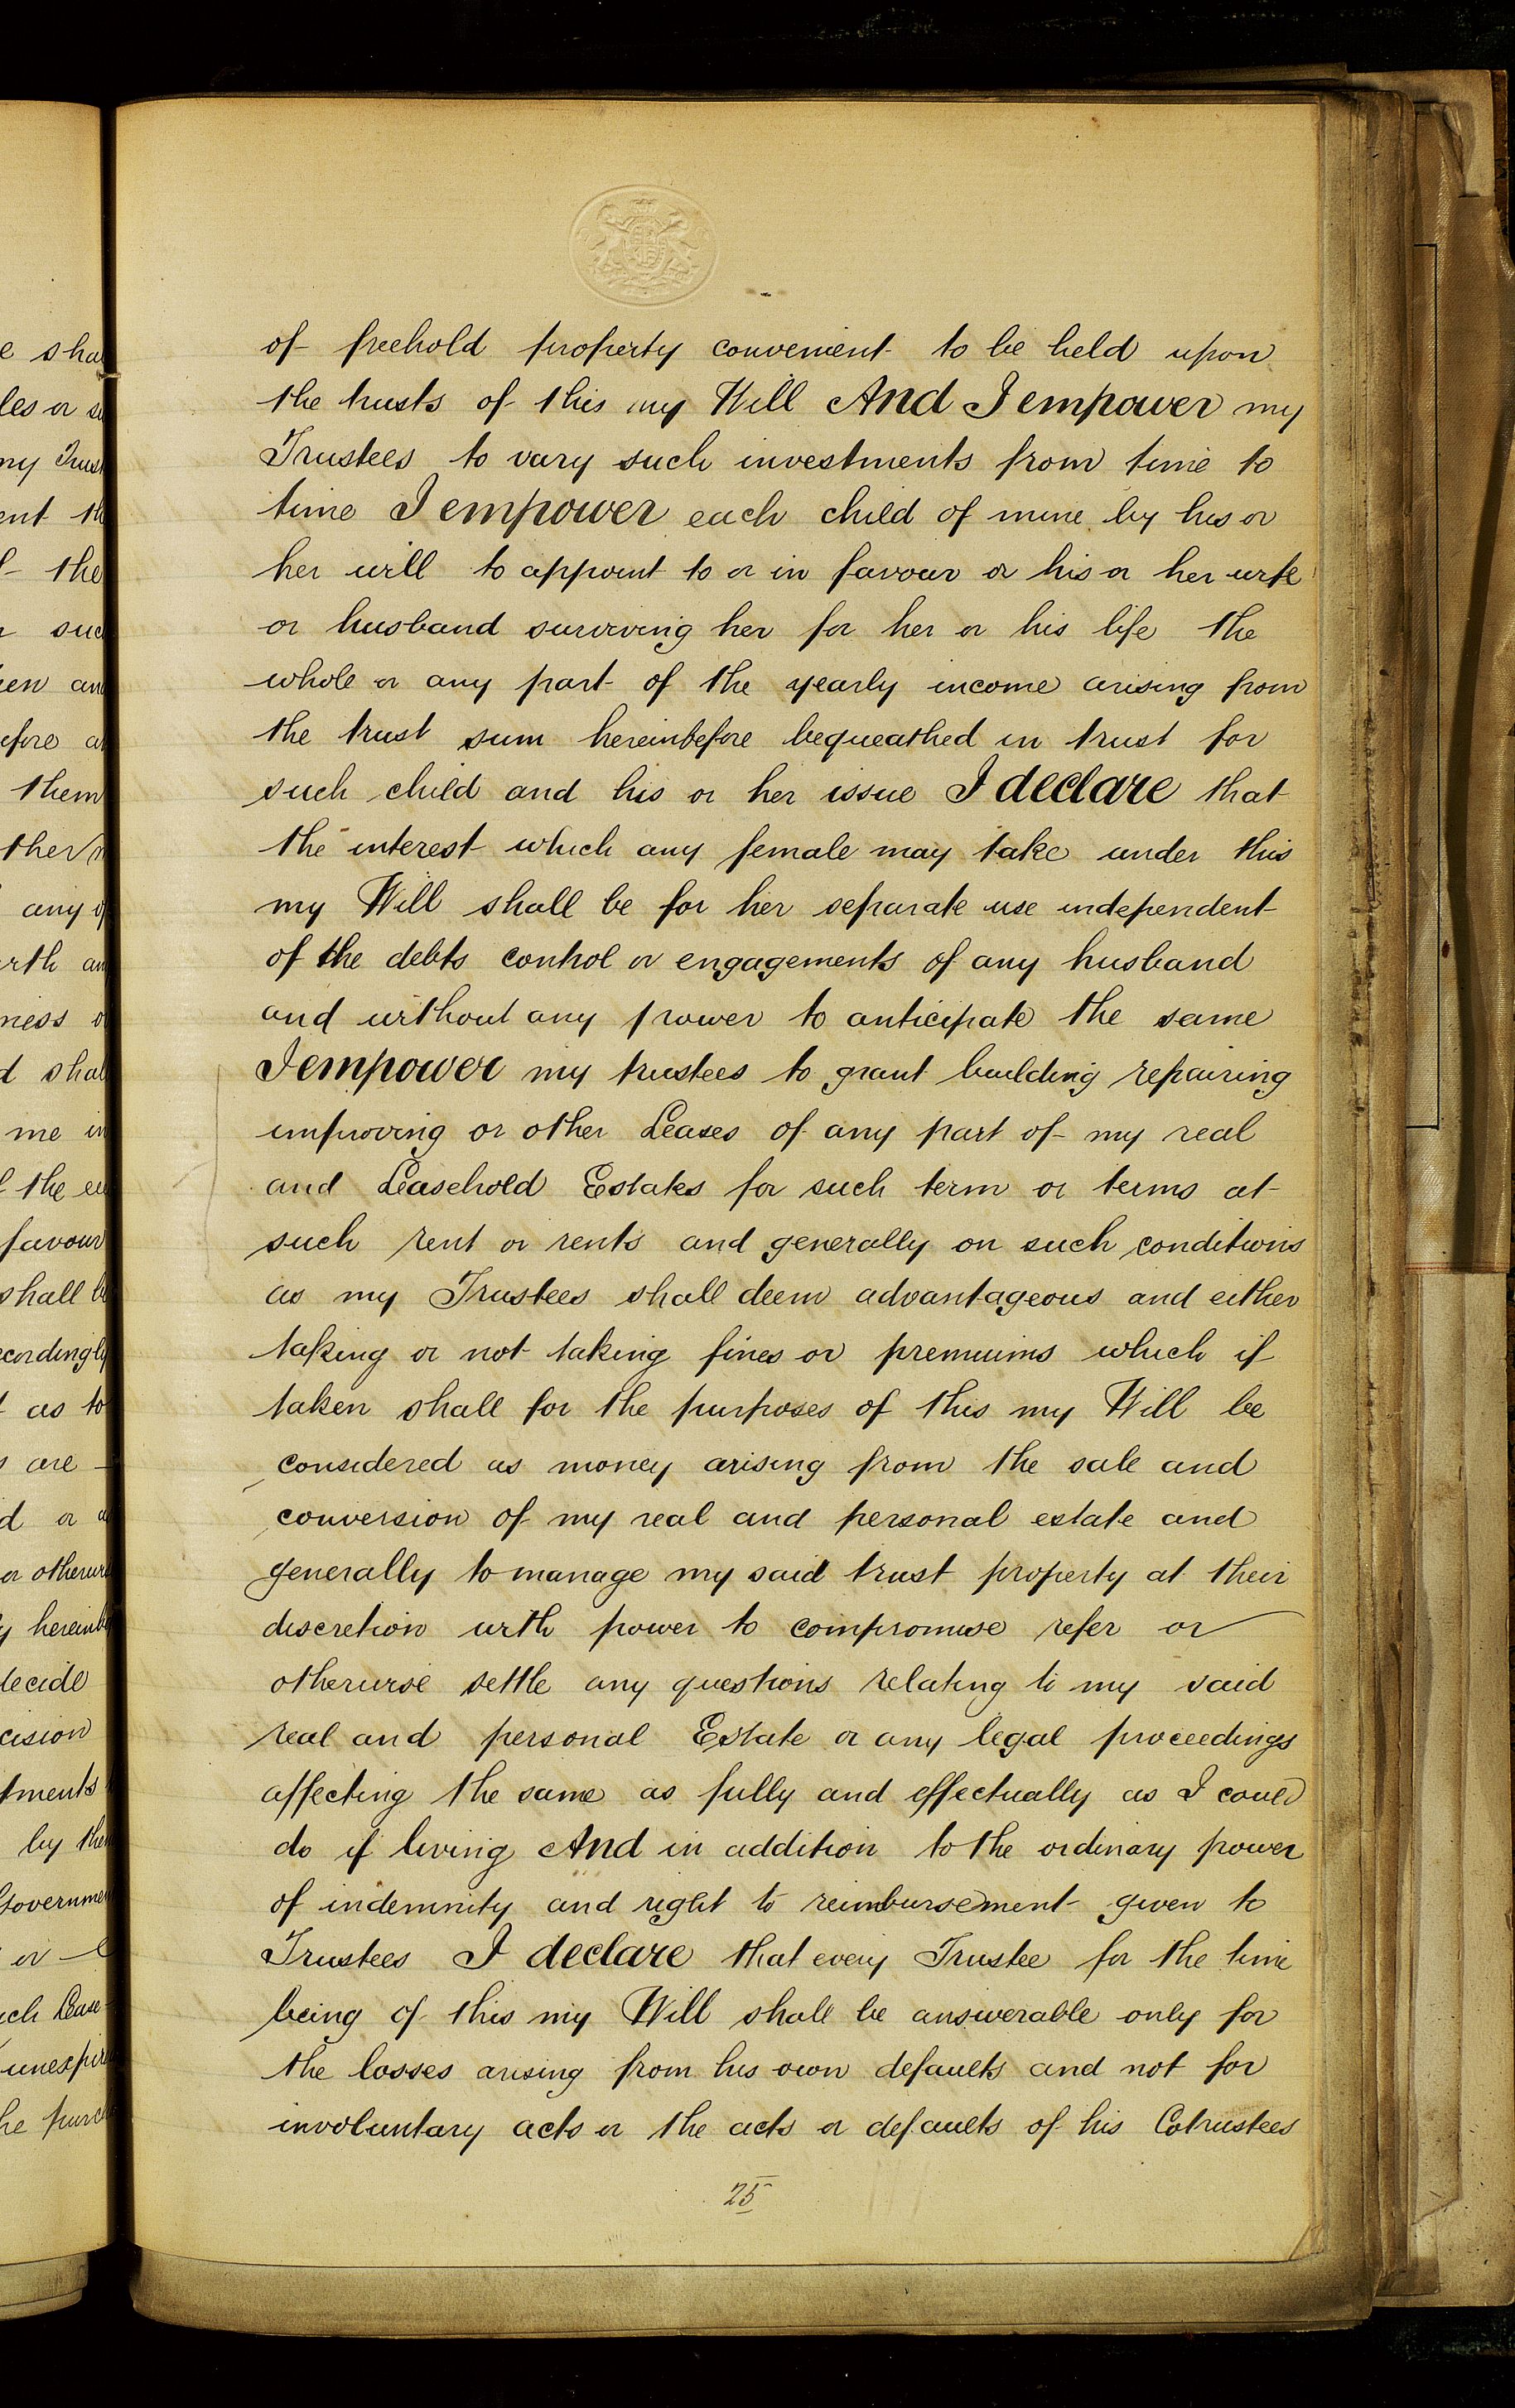 of freehold property convenient to be held upon
the trusts of this my Will And I empower my
Trustees to vary such investments from time to
time I empower each child of mine by his or
her will to appoint to or in favour or his or her wife
or husband surviving her for her or his life the
whole or any part of the yearly income arising from
the trust sum hereinbefore bequeathed in trust for
such child and his or her issue I declare that
the interest which any female may take under this
my Will shall be for her separate use independent
of the debts control or engagements of any husband
and without any power to anticipate the same
I empower my trustees to grant building repairing
improving or other Leases of any part of my real
and Leasehold Estates for such term or terms at
such rent or rents and generally on such conditions
as my Trustees shall deem advantageous and either
taking or not taking fines or premiums which if
taken shall for the purposes of this my Will be
considered as money arising from the sale and
conversion of my real and personal estate and
generally to manage my said trust property at their
discretion with power to compromise refer or
otherwise settle any questions relating to my said
real and personal Estate or any legal proceedings
affecting the same as fully and effectually as I could
do if living And in addition to the ordinary power
of indemnity and right to reimbursement given to
Trustees I declare that every Trustee for the time
being of this my Will shall be answerable only for
the losses arising from his own defaults and not for
involuntary acts or the acts or defaults of his Cotrustees
25